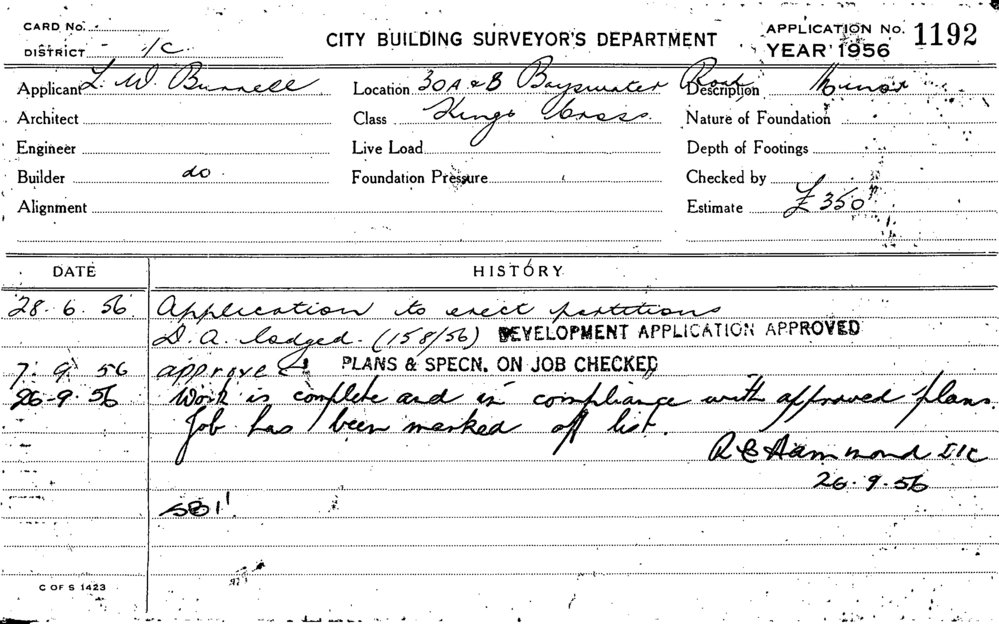 CARD No.
DISTRICT 1/C
CITY BUILDING SURVEYOR'S DEPARTMENT
APPLICATION No. 1192
YEAR 1956
Applicant L. W. Bunnell Location 30A & B Bayswater Road Description Minor
Architect Class Kings Cross Nature of Foundation
Engineer Live Load Depth of Footings
Builder do Foundation Pressure Checked by
Alignment Estimate £350
DATE HISTORY
28. 6. 56 Application to erect partitions
D. A. lodged. (158/56) DEVELOPMENT APPLICATION APPROVED
7. 9. 56 approved PLANS & SPECN. ON JOB CHECKED
26-9.56 Work is complete and in compliance with approved plans.
Job has been marked off list.
Hammond
26. 9. 56
C OF S 1423